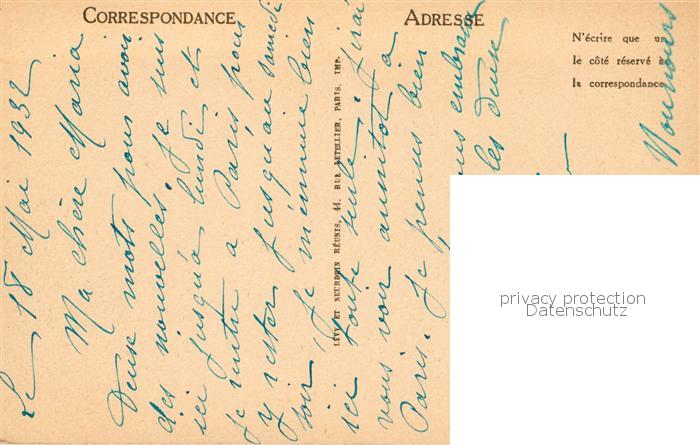 CORRESPONDANCE
ADRESSE
N'écrire que
le côté réservé
la correspondance
LÉVY ET NEURDEIN RÉUNIS, 44, RUE LETELLIER, PARIS, IMP.
Le 18 Mai 1932
Ma chère Maria
Deux mots pour avoir
des nouvelles. Je suis
ici jusqu'à lundi et
je rentre à Paris pour
y rester jusqu'au samedi
soir. Je m'ennuie bien
ici toute seule. J'irai
vous voir aussitôt à
Paris. Je pense bien
embrasse
les deux
privacy protection
Datenschutz